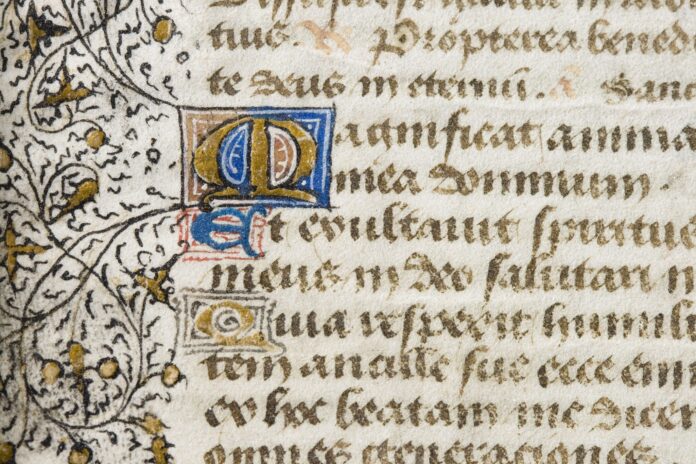 tuis. Propterea bened
te deus in eternū. Sanc
Magnificat anima
mea dominum.
Et exultauit spiritus
meus in deo salutari m
Quia respexit humili
tem ancille sue ecce eni
ex hoc beatam me dicen
omnes generaciones